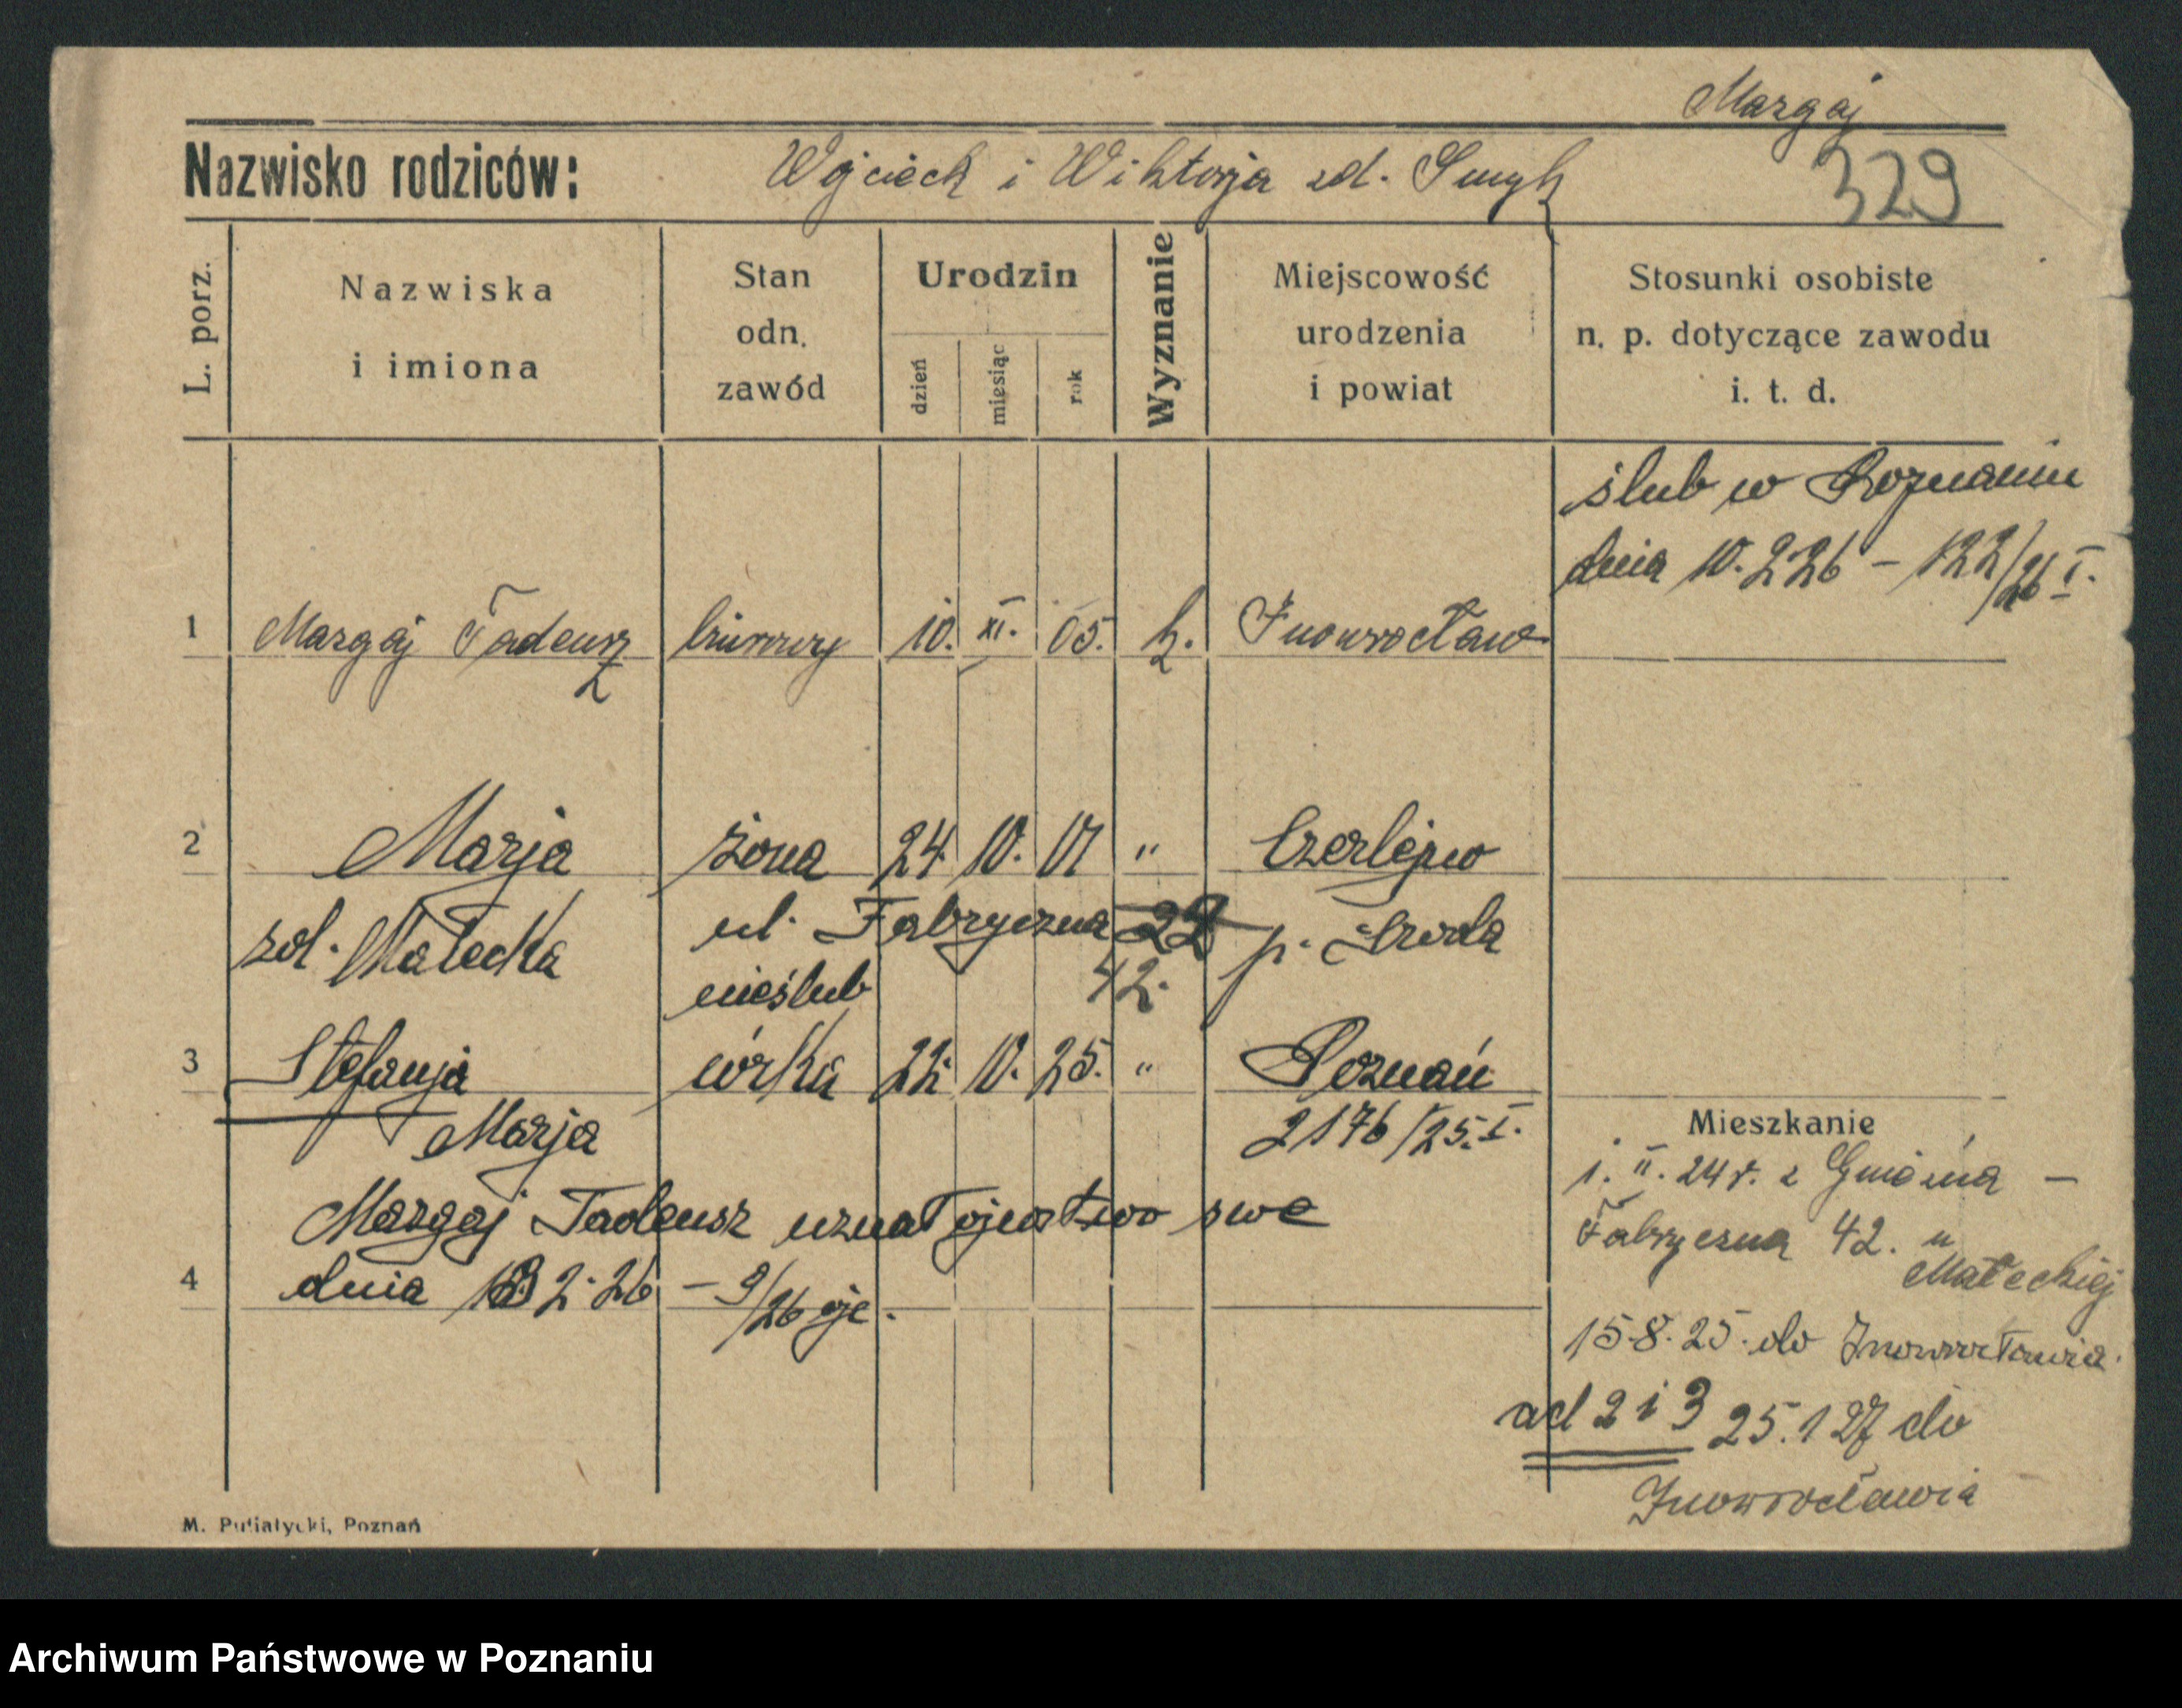 Mazgaj
Nazwisko rodziców: Wojciech i Wiktorja zd. Smyk 329
L. porz.
Nazwiska
i imiona
Stan
odn.
zawód
Urodzin
dzień
miesiąc
rok
Wyznanie
Miejscowość
urodzenia
i powiat
Stosunki osobiste
n. p. dotyczące zawodu
i. t. d.
ślub w Poznaniu
dnia 10.2 26 – 122/26 I.
1 Mazgaj Tadeusz biurowy 10. XI. 05. k. Inowrocław
2 Marja żona 24 10. 01 " Czerlejno
zd. Małecka ul. Fabryczna 22 p. Środa
nieślub 42.
3 Stefanja córka 22. 10. 25. " Poznań
Marja 2176/25. I.
Mazgaj Tadeusz uznał ojcostwo swe
4 dnia 2.26 – 9/26 ojc.
Mieszkanie
1. II. 24 r. z Gniezna –
Fabryczna 42. u
Małeckiej
15.8.25. do Inowrocławia.
ad 2 i 3 25.1 27 do
Inowrocławia
M. Putiatycki, Poznań
Archiwum Państwowe w Poznaniu